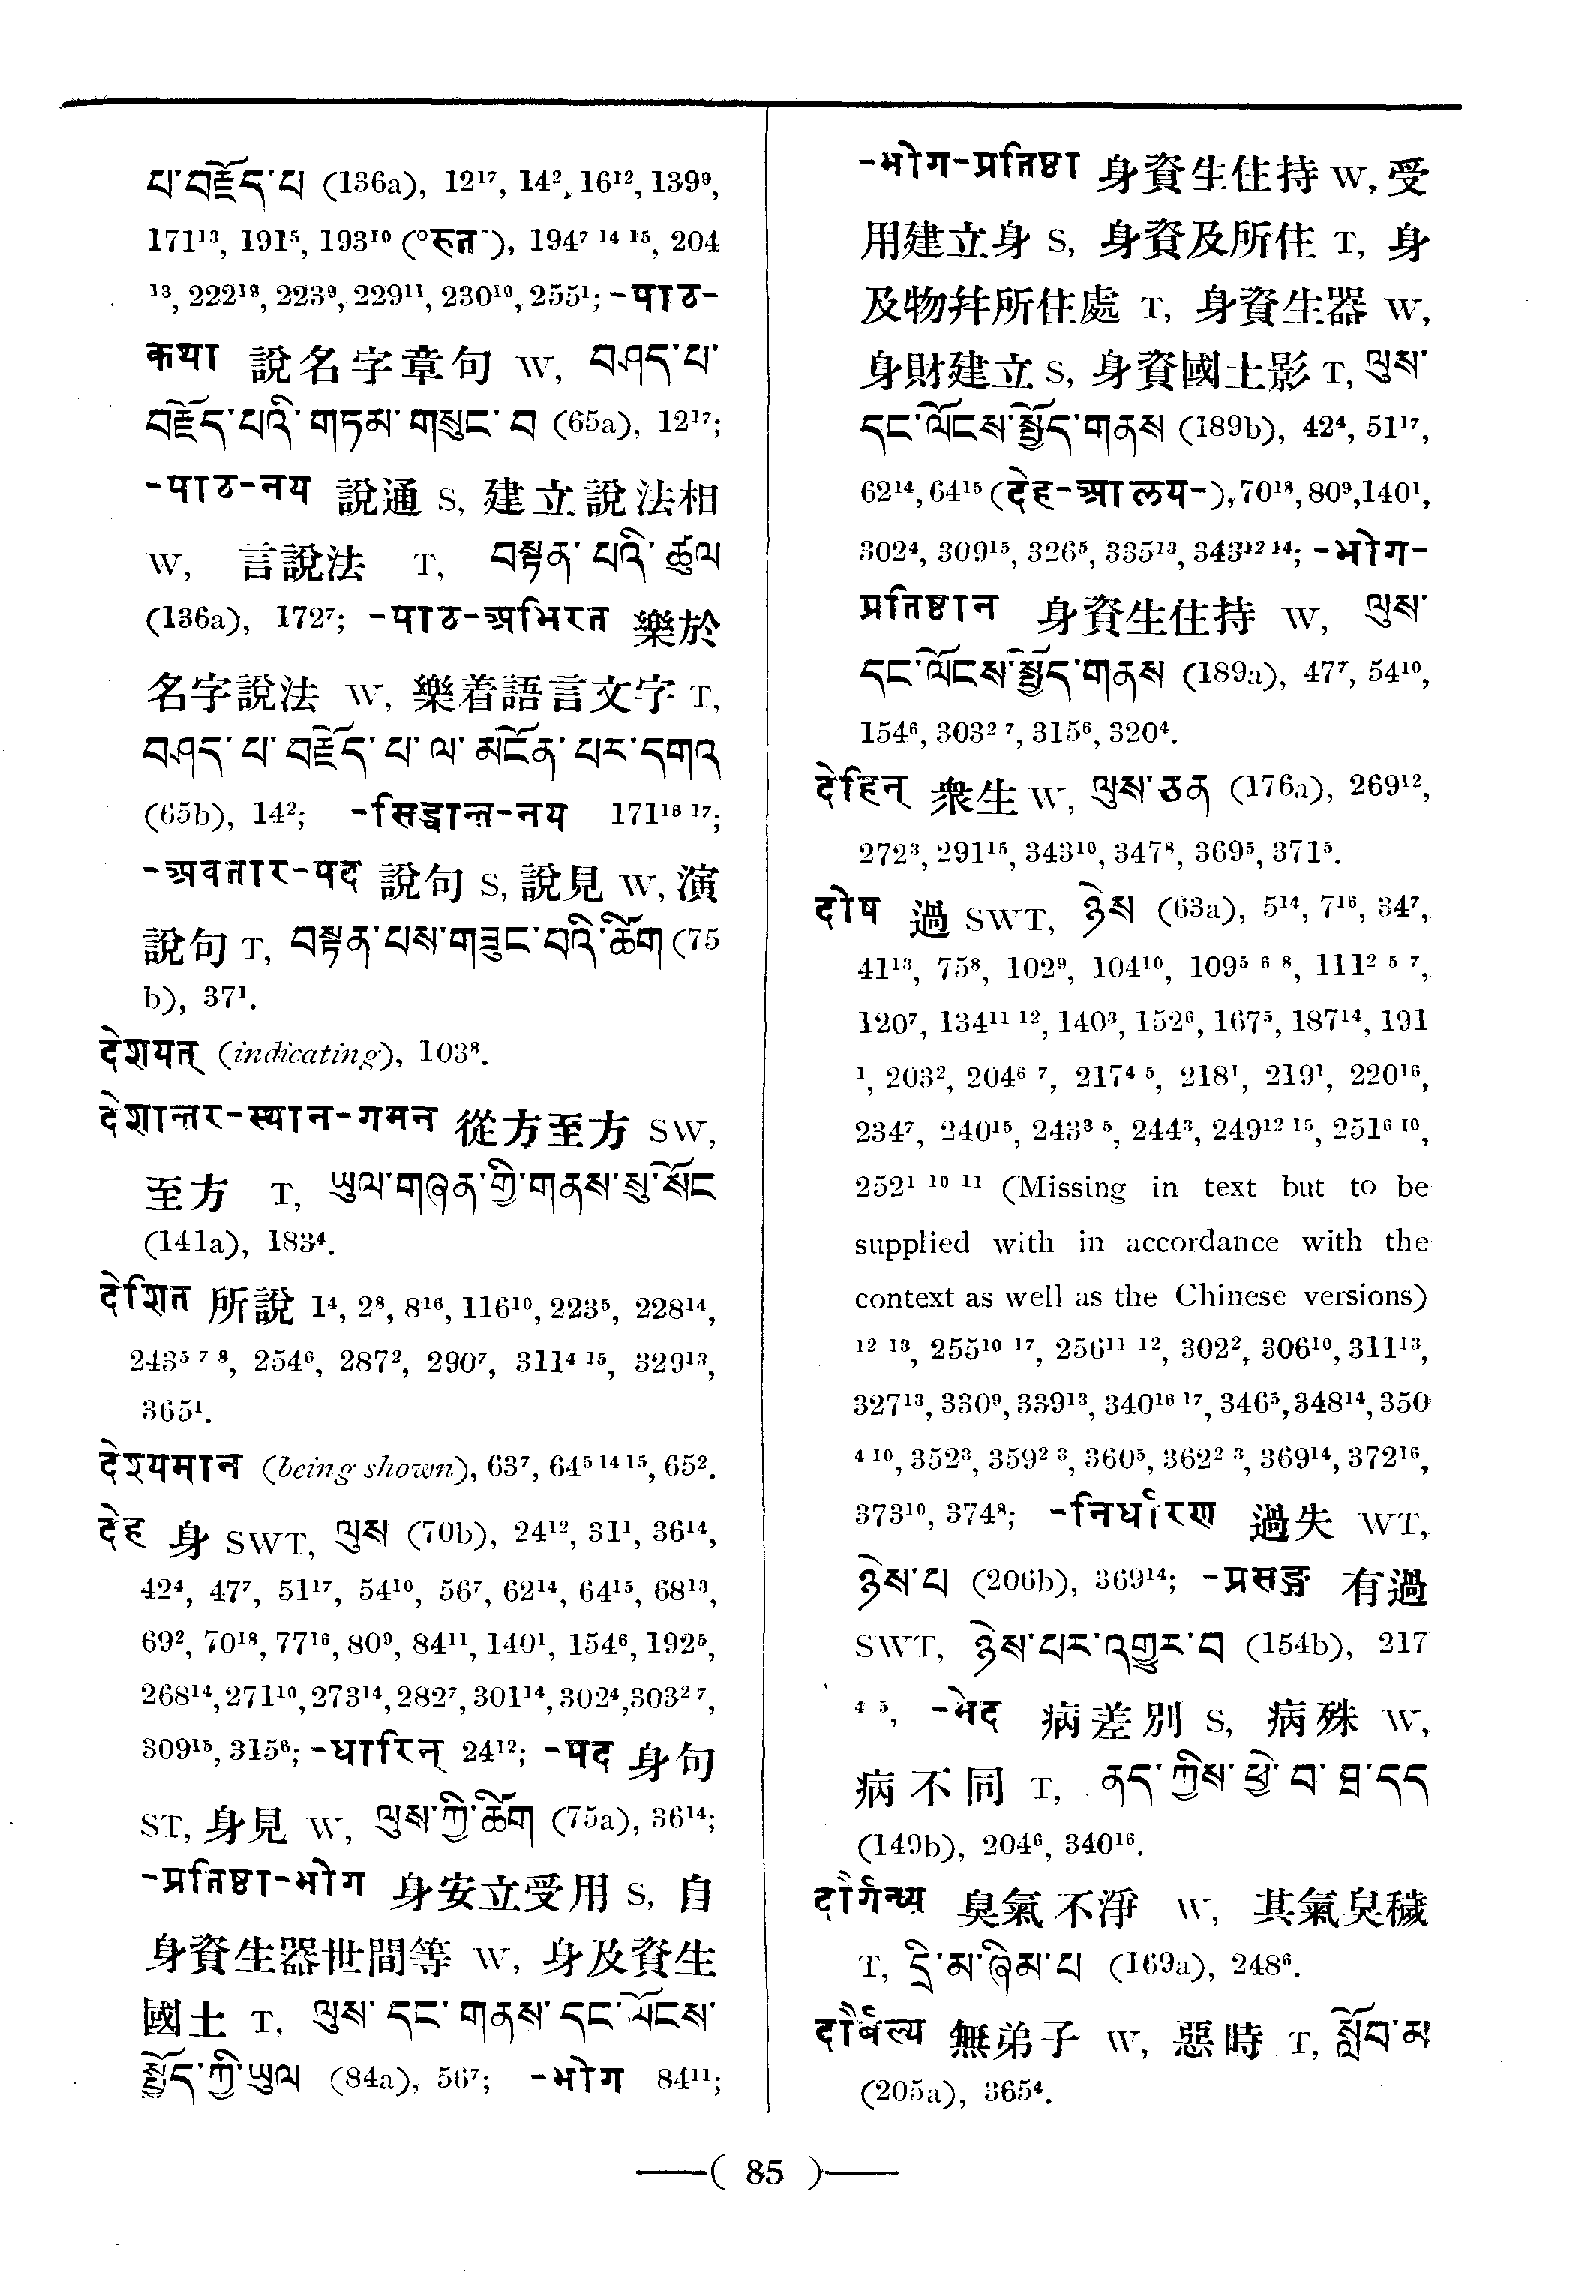 པ་བརྗོད་པ (136a), 12¹⁷, 14², 16¹², 139⁹,
171¹³, 191⁵, 193¹⁰ (°रुत-), 194⁷ ¹⁴ ¹⁵, 204
¹³, 222¹⁸, 223⁹, 229¹¹, 230¹⁰, 255¹; -पाठ-
कथा 說名字章句 W, བཤད་པ་
བརྗོད་པའི་གཏམ་གསུང་བ (65a), 12¹⁷;
-पाठ-नय 說通 S, 建立說法相
W, 言說法 T, བསྟན་པའི་ཚུལ
(136a), 172⁷; -पाठ-अभिरत 樂於
名字說法 W, 樂着語言文字 T,
བཤད་པ་བརྗོད་པ་ལ་མངོན་པར་དགའ
(65b), 14²; -सिद्धान्त-नय 171¹⁶ ¹⁷;
-अवतार-पद 說句 S, 說見 W, 演
說句 T, བསྟན་པས་གཟུང་བའི་ཚིག (75
b), 37¹.
देशयत् (indicating), 103⁸.
देशान्तर-स्थान-गमन 從方至方 SW,
至方 T, ཡུལ་གཞན་གྱི་གནས་སུ་སོང
(141a), 183⁴.
देशित 所說 1⁴, 2⁸, 8¹⁶, 116¹⁰, 223⁵, 228¹⁴,
243⁵ ⁷ ⁸, 254⁶, 287², 290⁷, 311⁴ ¹⁵, 329¹³,
365¹.
देश्यमान (being shown), 63⁷, 64⁵ ¹⁴ ¹⁵, 65².
देह 身 SWT, ལུས (70b), 24¹², 31¹, 36¹⁴,
42⁴, 47⁷, 51¹⁷, 54¹⁰, 56⁷, 62¹⁴, 64¹⁵, 68¹³,
69², 70¹⁸, 77¹⁶, 80⁹, 84¹¹, 140¹, 154⁶, 192⁵,
268¹⁴, 271¹⁰, 273¹⁴, 282⁷, 301¹⁴, 302⁴, 303² ⁷,
309¹⁵, 315⁶; -धारिन् 24¹²; -पद 身句
ST, 身見 W, ལུས་ཀྱི་ཚིག (75a), 36¹⁴;
-प्रतिष्ठा-भोग 身安立受用 S, 自
身資生器世間等 W, 身及資生
國土 T, ལུས་དང་གནས་དང་ལོངས་
སྤྱོད་ཀྱི་ཡུལ (84a), 56⁷; -भोग 84¹¹;
-भोग-प्रतिष्ठा 身資生住持 W, 受
用建立身 S, 身資及所住 T, 身
及物幷所住處 T, 身資生器 W,
身財建立 S, 身資國土影 T, ལུས་
དང་ལོངས་སྤྱོད་གནས (189b), 42⁴, 51¹⁷,
62¹⁴, 64¹⁵ (देह-आलय-), 70¹⁸, 80⁹, 140¹,
302⁴, 309¹⁵, 326⁵, 335¹³, 343¹² ¹⁴; -भोग-
प्रतिष्ठान 身資生住持 W, ལུས་
དང་ལོངས་སྤྱོད་གནས (189a), 47⁷, 54¹⁰,
154⁶, 303² ⁷, 315⁶, 320⁴.
देहिन् 衆生 W, ལུས་ཅན (176a), 269¹²,
272³, 291¹⁵, 343¹⁰, 347⁸, 369⁵, 371⁵.
दोष 過 SWT, ཉེས (63a), 5¹⁴, 7¹⁶, 34⁷,
41¹³, 75⁸, 102⁹, 104¹⁰, 109⁵ ⁶ ⁸, 111² ⁵ ⁷,
120⁷, 134¹¹ ¹², 140³, 152⁶, 167⁵, 187¹⁴, 191
¹, 203², 204⁶ ⁷, 217⁴ ⁵, 218¹, 219¹, 220¹⁶,
234⁷, 240¹⁵, 243³ ⁵, 244³, 249¹² ¹⁵, 251⁶ ¹⁰,
252¹ ¹⁰ ¹¹ (Missing in text but to be
supplied with in accordance with the
context as well as the Chinese versions)
¹² ¹³, 255¹⁰ ¹⁷, 256¹¹ ¹², 302², 306¹⁰, 311¹³,
327¹³, 330⁹, 339¹³, 340¹⁶ ¹⁷, 346⁵, 348¹⁴, 350
⁴ ¹⁰, 352³, 359² ³, 360⁵, 362² ³, 369¹⁴, 372¹⁶,
373¹⁰, 374⁸; -निर्धारण 過失 WT,
ཉེས་པ (206b), 369¹⁴; -प्रसङ्ग 有過
SWT, ཉེས་པར་འགྱུར་བ (154b), 217
⁴ ⁵, -भेद 病差別 S, 病殊 W,
病不同 T, ནད་ཀྱིས་ཕྱེ་བ་ཐ་དད
(149b), 204⁶, 340¹⁶.
दौर्गन्ध्य 臭氣不淨 W, 其氣臭穢
T, དྲི་མ་ཞིམ་པ (169a), 248⁶.
दौर्बल्य 無弟子 W, 惡時 T, སློབ་མ
(205a), 365⁴.
—( 85 )—